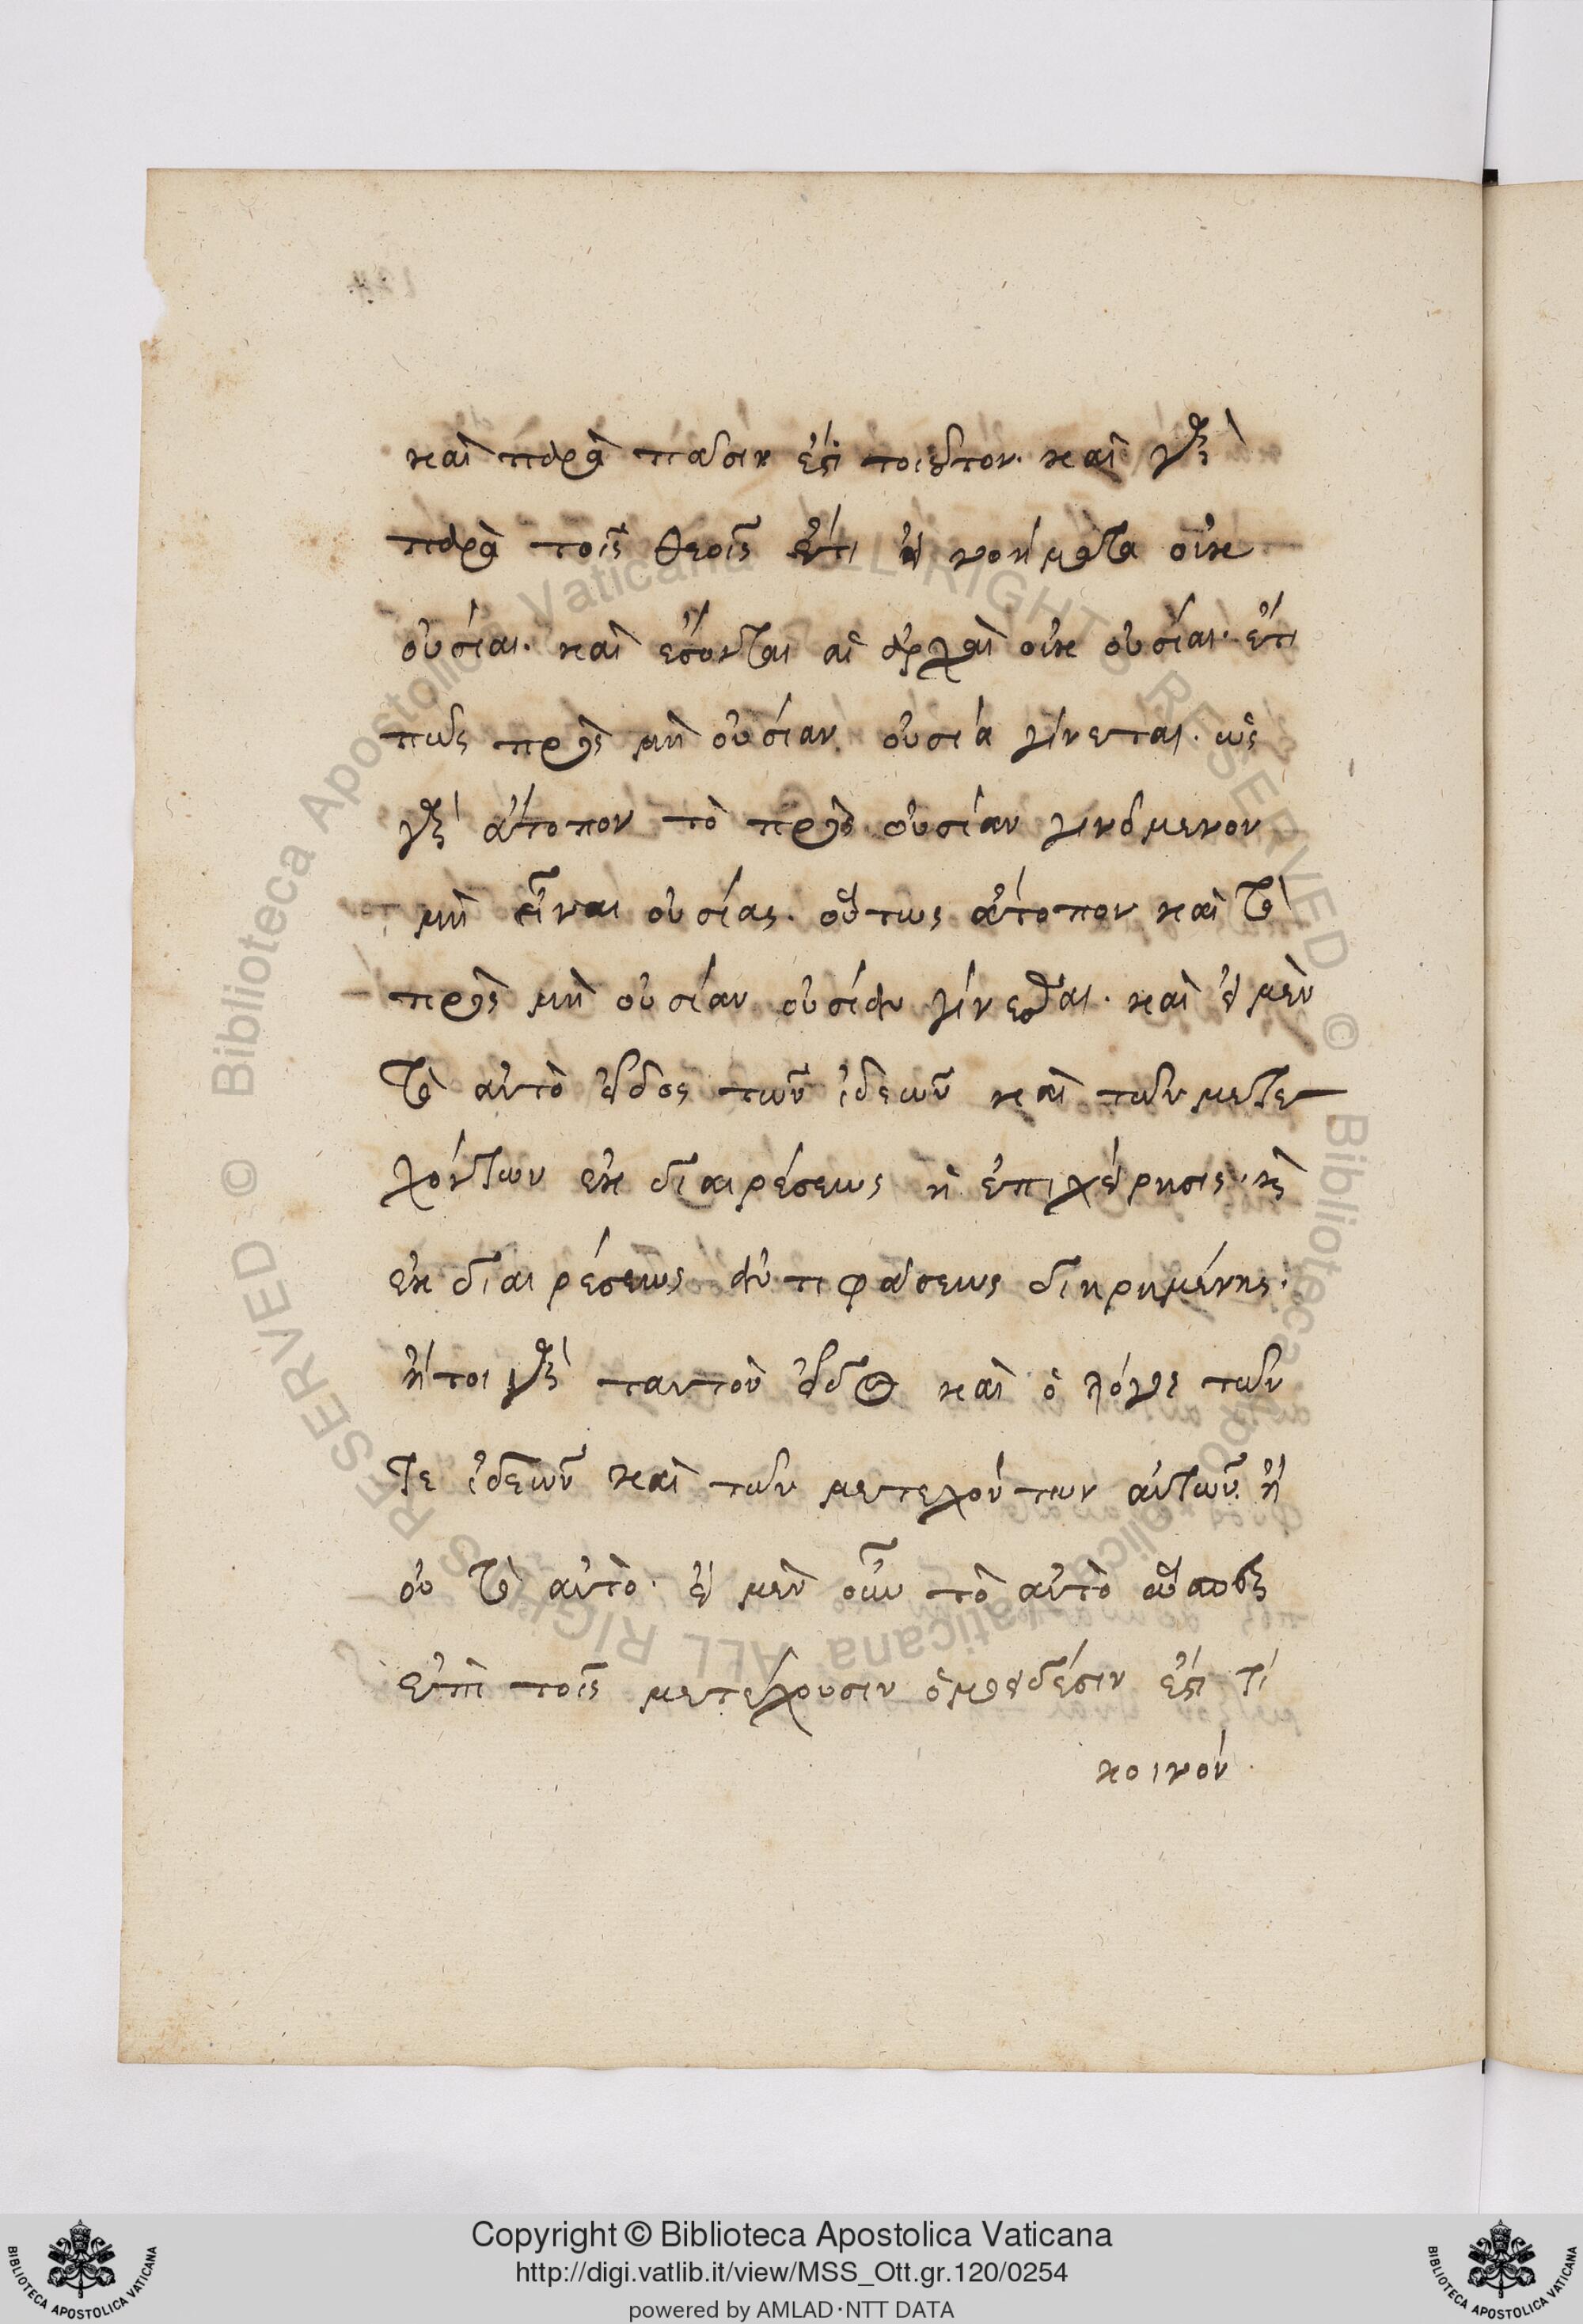 καὶ παρὰ πᾶσιν ἐστὶ τοιοῦτον. καὶ γὰρ
παρὰ τοῖς θεοῖς ἔτι εἰ νοήματα οὐκ
οὐσίαι. καὶ ἔσονται αἱ ἀρχαὶ οὐκ οὐσίαι. ἔτι
πῶς πρὸς μὴ οὐσίαν οὐσία γίνεται. ὡς
γὰρ ἄτοπον τὸ πρὸς οὐσίαν γινόμενον
μὴ εἶναι οὐσίας. οὕτως ἄτοπον καὶ τὸ
πρὸς μὴ οὐσίαν οὐσίαν γίνεσθαι. καὶ εἰ μὲν
τὸ αὐτὸ εἶδος τῶν ἰδεῶν καὶ τῶν μετε
χόντων ἐκ διαιρέσεως ἡ ἐπιχείρησις. καὶ
ἐκ διαιρέσεως ἀντιφάσεως διηρημένης.
ἤτοι γὰρ ταυτὸν εἶδος καὶ ὁ λόγος τῶν
τε ἰδεῶν καὶ τῶν μετεχόντων αὐτῶν. ἢ
οὐ τὸ αὐτὸ. εἰ μὲν οὖν τὸ αὐτὸ
ἐπὶ τοῖς μετέχουσιν ὁμοειδέσιν ἐστί τι
κοινόν.
Copyright © Biblioteca Apostolica Vaticana
http://digi.vatlib.it/view/MSS_Ott.gr.120/0254
powered by AMLAD·NTT DATA